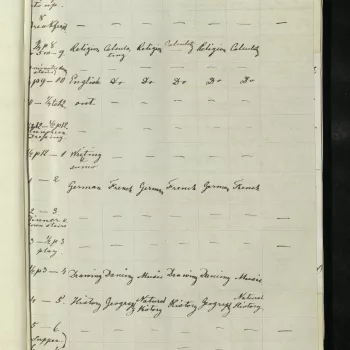 8
Breakfast
½ p 8 – 9. Religion Calculating Religion Calculatg Religion Calculatg
9 – 10 English Do Do Do Do Do
out — — — — —
— — — — — —
½ p 12 – 1 Writing — — — — —
1 – 2 German French German French German French
2 – 3 — — — — — — —
Dinner &
3 – ½ p 3 — — — — — —
play.
½ p 3 – 4 Drawing Dancing Music Drawing Dancing Music
4 – 5. History Geography Natural History History Geography Natural History.
5 6. — — — — — — —
Supper